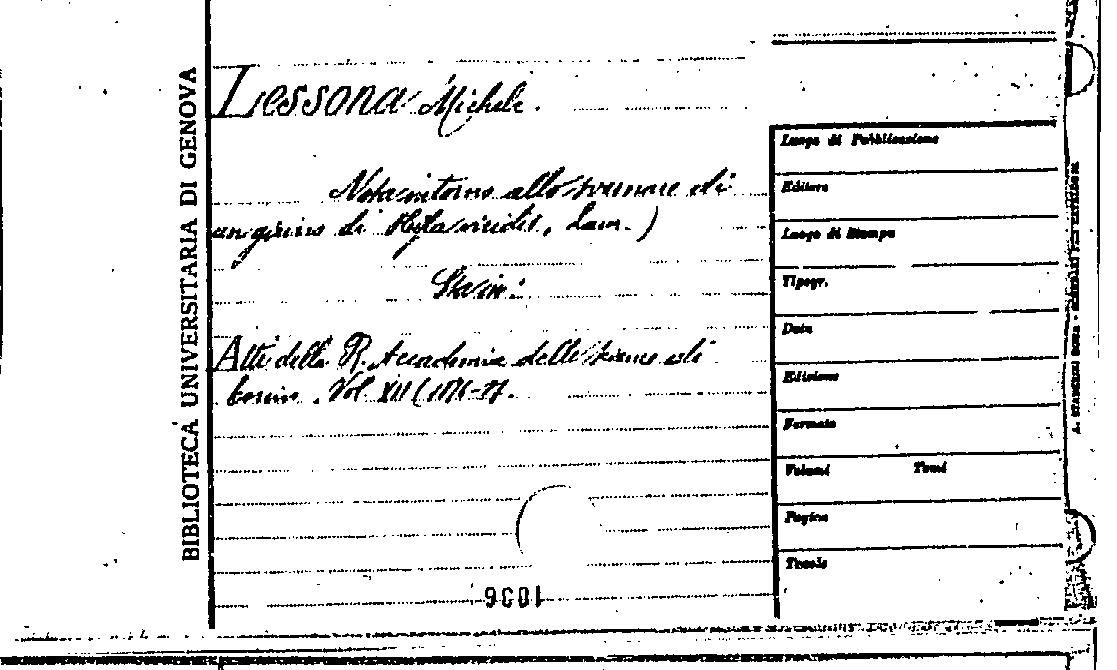 BIBLIOTECA UNIVERSITARIA DI GENOVA
Lessona Michele.
Nota intorno allo svernare di
un girino di Hyla viridis, Laur.)
Sta in:
Atti della R. Accademia delle scienze di
Torino. Vol XII (1876-77.
Luogo di Pubblicazione
Editore
Luogo di Stampa
Tipogr.
Data
Edizione
Formato
Volumi Tomi
Pagine
Tavole